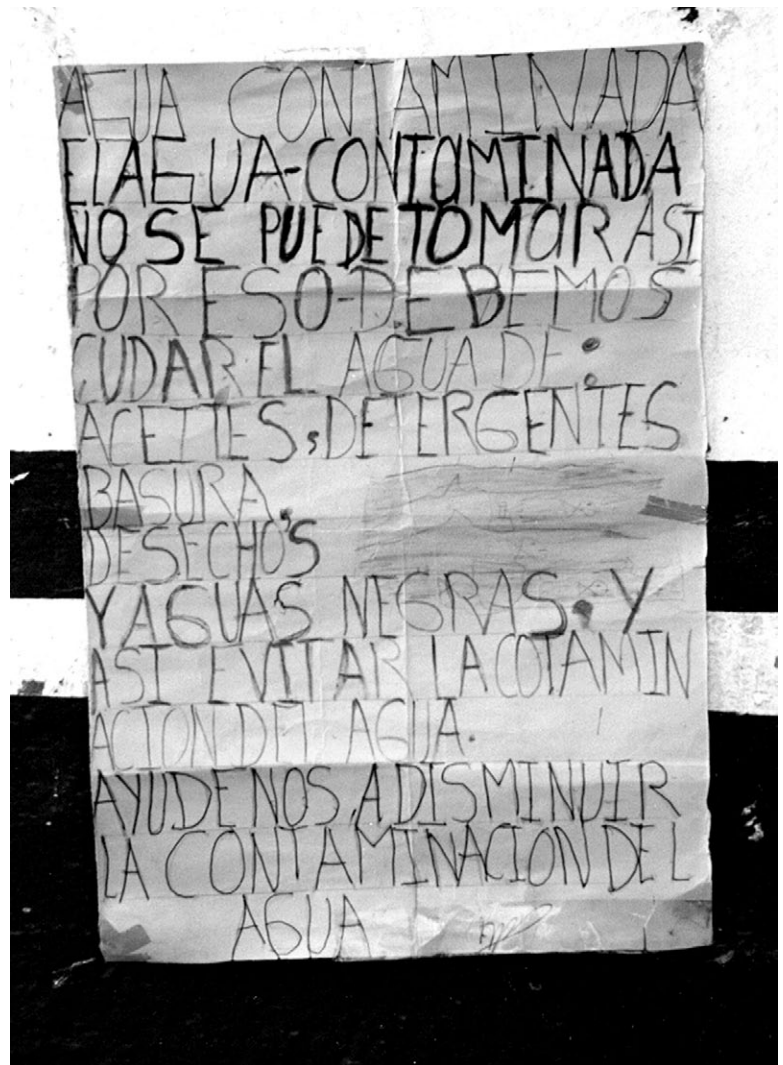 AGUA CONTAMINADA
EL AGUA-CONTAMINADA
NO SE PUEDE TOMAR ASI
POR ESO-DEBEMOS
CUDAR EL AGUA DE:
ACEITES, DETERGENTES
BASURA,
DESECHO'S
Y AGUAS NEGRAS. Y
ASI EVITAR LA COTAMIN
ACION DEL AGUA.
AYUDENOS A DISMINUIR
LA CONTAMINACION DEL
AGUA